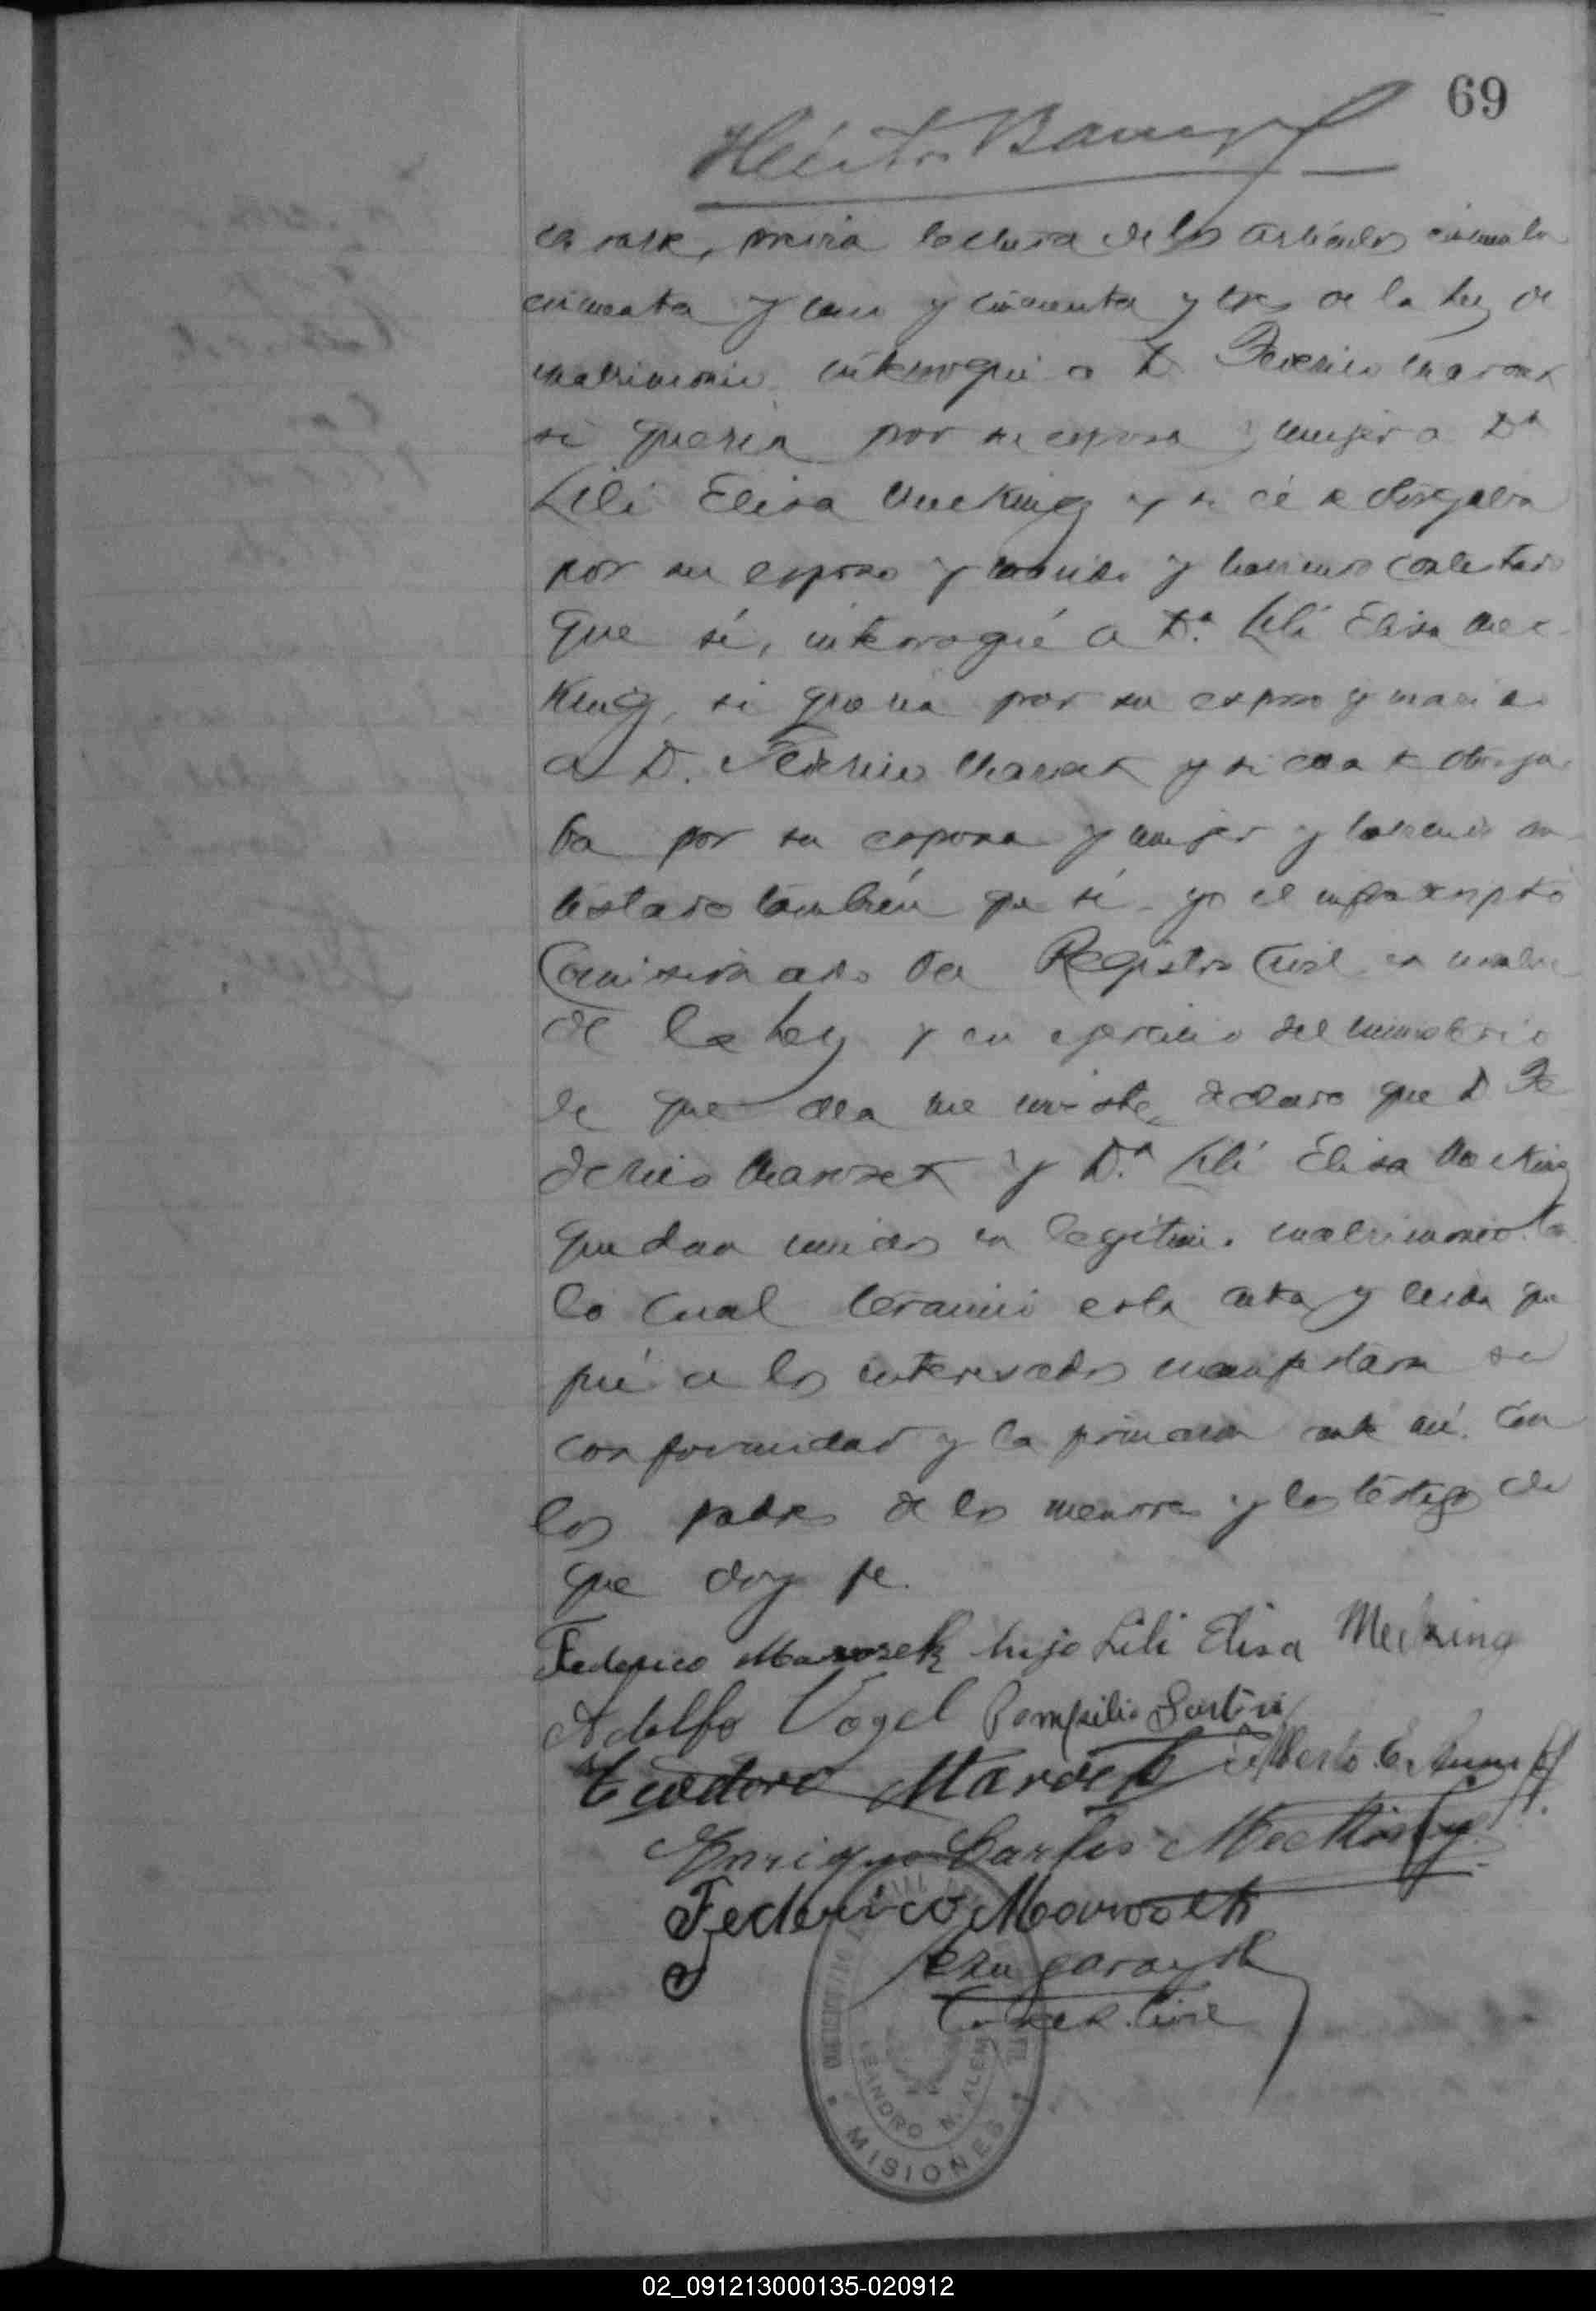 69
Héctor Barreyro
en este, previa lectura de los artículos cincuenta
cincuenta y uno y cincuenta y tres de la ley de
matrimonio interrogué a D Federico Marozek
si quería por su esposa y mujer a Dª
Lili Elisa Mecking y si él se otorgaba
por su esposo y marido y habiendo contestado
que sí, interrogué a Dª Lili Elisa Mec
King, si quería por su esposo y marido
a D. Federico Marozek y si ella se otorga
ba por su esposa y mujer y habiendo con
testado también que sí yo el infrascripto
Comisionado del Registro Civil en nombre
de la ley y en ejercicio del ministerio
de que ella me inviste, declaro que D Fe
derico Marozek y Dª Lili Elisa Mecking
quedan unidos en legítimo matrimonio. Con
lo cual terminó esta acta y leida que
fué a los interesados manifestaron su
conformidad y la firmaron ante mí. Con
los padres de los menores y los testigos de
que doy fe.
Federico Marozek hijo Lili Elisa Mecking
Adolfo Vogel Pompilio Sartori
Teodoro Marozek Alberto E.
Enrique Carlos Mecking
Federico Marozek
LEANDRO N. ALEM
MISIONES
02_091213000135-020912